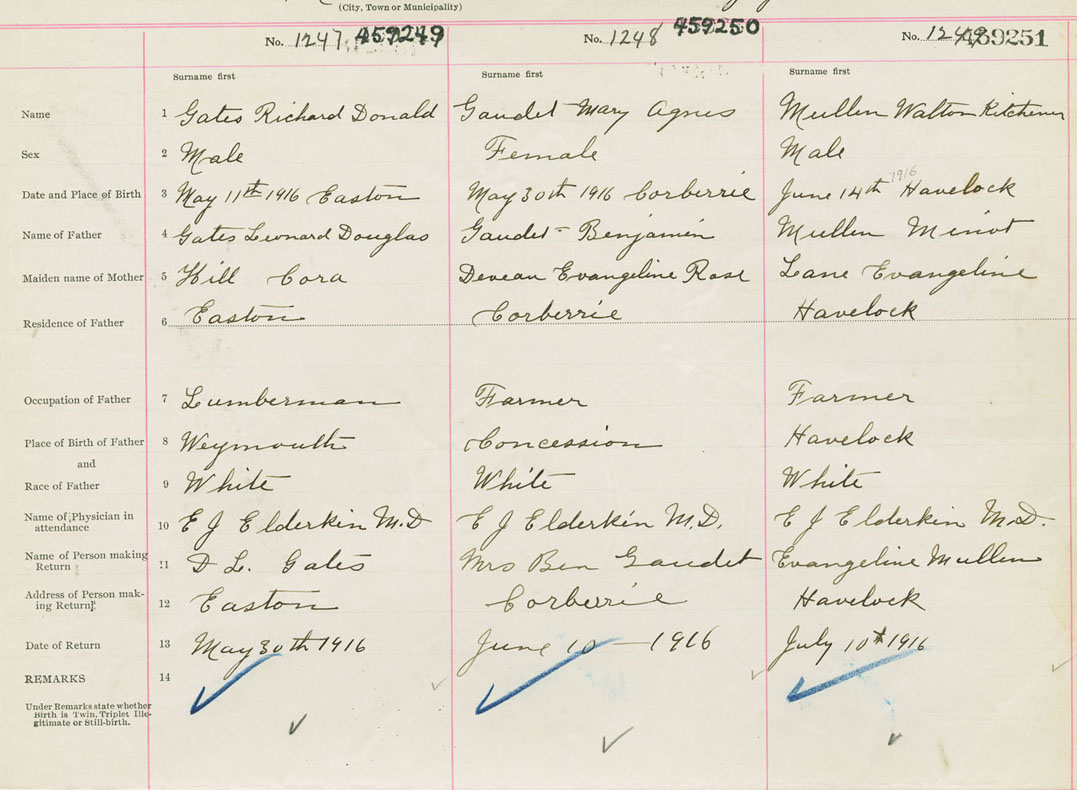 (City, Town or Municipality)
No. 1247 459249 No. 1248 459250 No. 459251
Surname first Surname first Surname first
Name 1 Gates Richard Donald Gaudet Mary Agnes Mullen Walton Kitchener
Sex 2 Male Female Male
Date and Place of Birth 3 May 11th 1916 Easton May 30th 1916 Corberrie June 14th 1916 Havelock
Name of Father 4 Gates Leonard Douglas Gaudet - Benjamin Mullen Minot
Maiden name of Mother 5 Hill Cora Deveau Evangeline Rose Lane Evangeline
Residence of Father 6 Easton Corberrie Havelock
Occupation of Father 7 Lumberman Farmer Farmer
Place of Birth of Father 8 Weymouth Concession Havelock
and
Race of Father 9 White White White
Name of Physician in
attendance 10 E J Elderkin M.D E J Elderkin M.D. E J Elderkin M.D.
Name of Person making
Return 11 D L. Gates Mrs Ben Gaudet Evangeline Mullen
Address of Person mak-
ing Return 12 Easton Corberrie Havelock
Date of Return 13 May 30th 1916 June 10 - 1916 July 10th 1916
REMARKS 14
Under Remarks state whether
Birth is Twin, Triplet Ille-
gitimate or Still-birth.